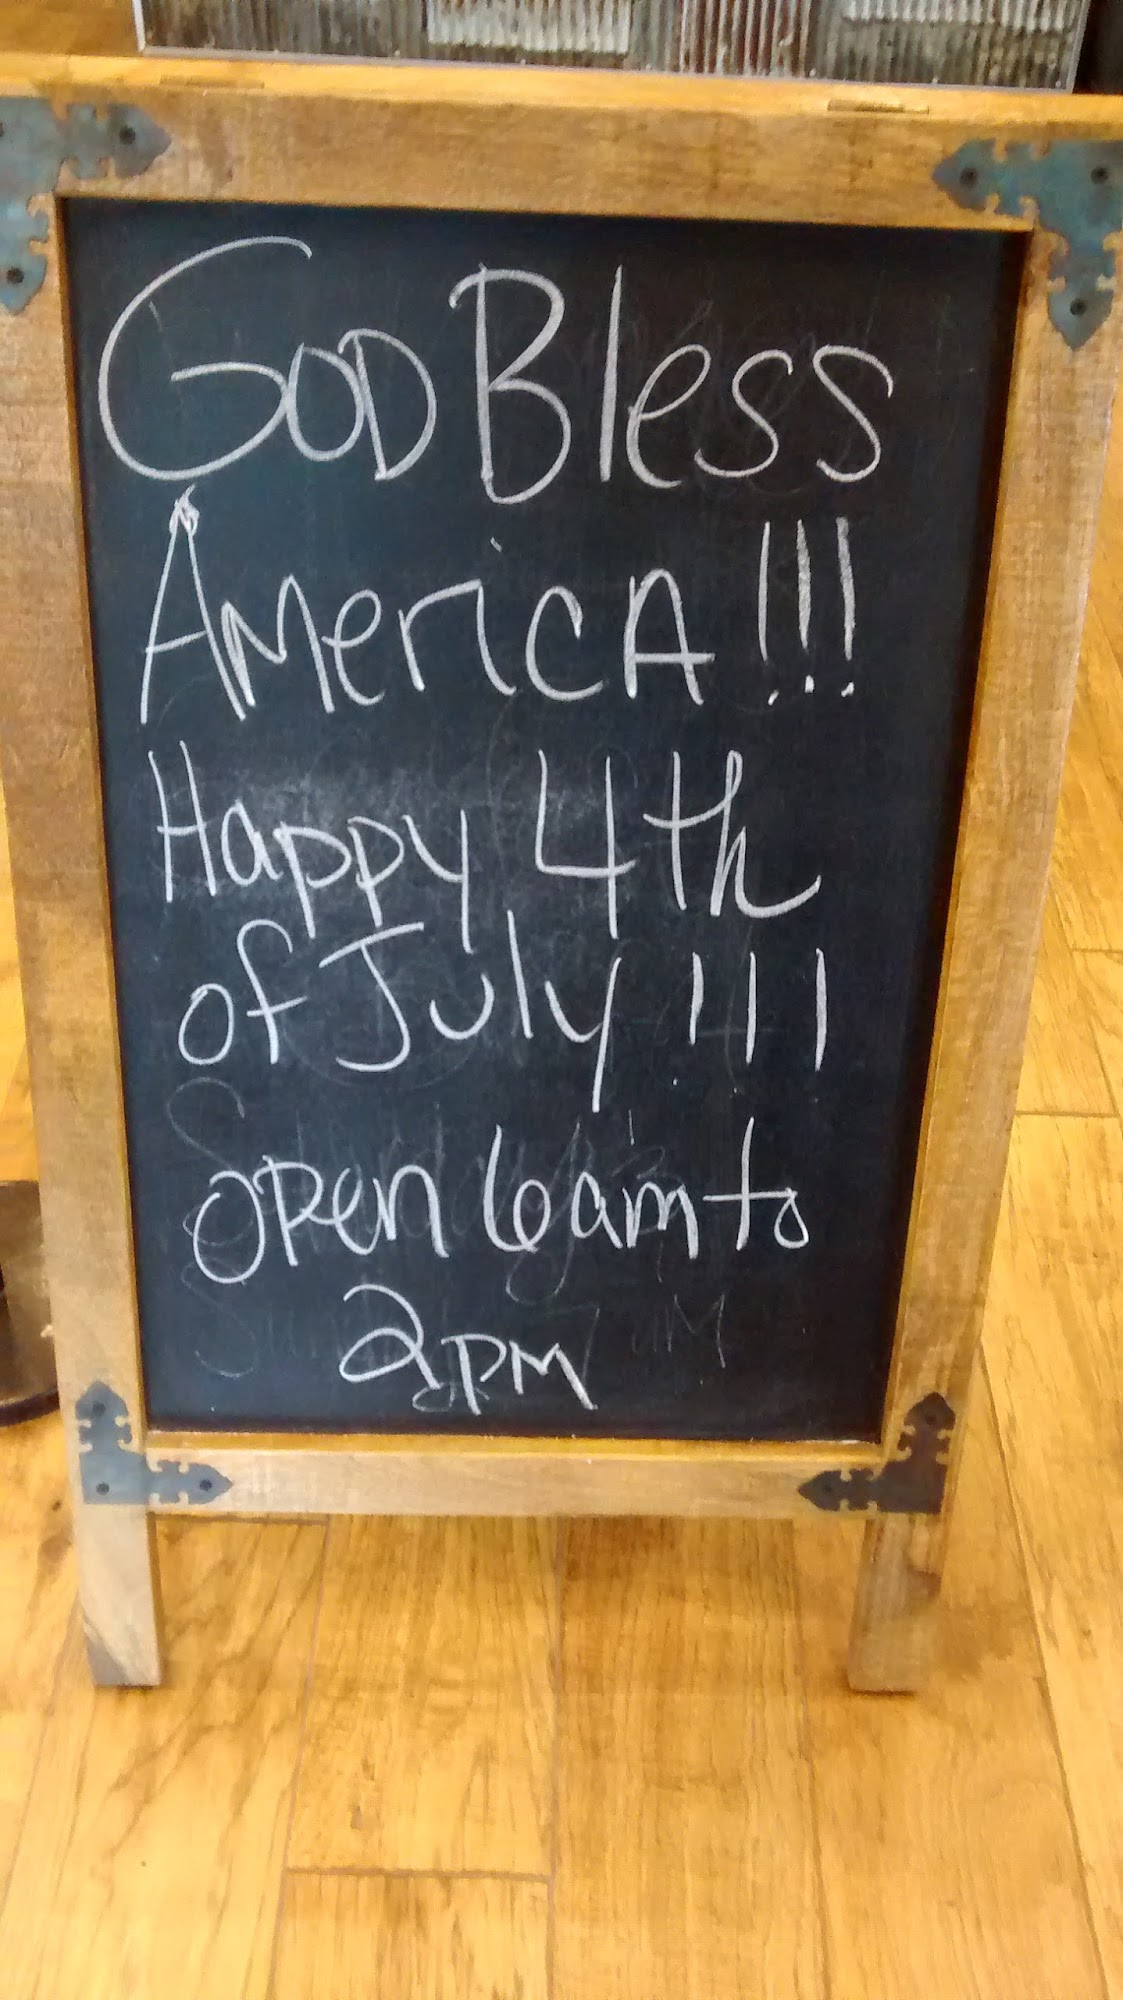 GOD Bless
AmericA!!!
Happy 4th
of July!!!
open 6am to
2pm